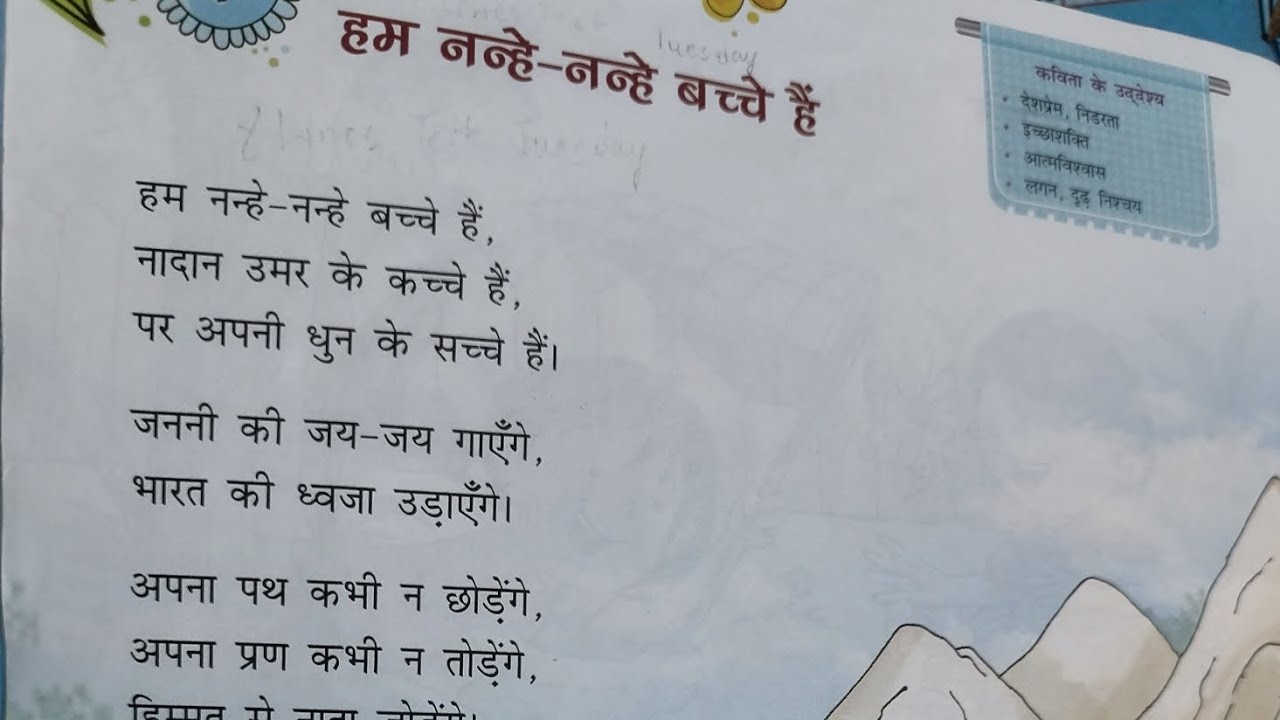 हम नन्हे-नन्हे बच्चे हैं
Tuesday
कविता के उद्देश्य
• देशप्रेम, निडरता
• इच्छाशक्ति
• आत्मविश्वास
• लगन, दृढ़ निश्चय
हम नन्हे-नन्हे बच्चे हैं,
नादान उमर के कच्चे हैं,
पर अपनी धुन के सच्चे हैं।
जननी की जय-जय गाएँगे,
भारत की ध्वजा उड़ाएँगे।
अपना पथ कभी न छोड़ेंगे,
अपना प्रण कभी न तोड़ेंगे,
हिम्मत से नाता जोड़ेंगे।